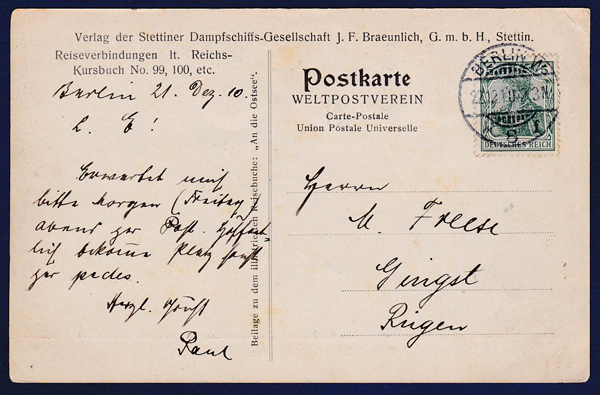 Verlag der Stettiner Dampfschiffs-Gesellschaft J. F. Braeunlich, G. m. b. H., Stettin.
Reiseverbindungen lt. Reichs-
Kursbuch No. 99, 100, etc.
Berlin 21. Dez. 10.
L. E!
Erwartet mich
bitte morgen (Freitag)
abend per Post. Hoffent
lich bekomme Platz sonst
per pedes.
Herzl.
Paul
Beilage zu dem illustrierten Reisebuche: „An die Ostsee“.
Postkarte
WELTPOSTVEREIN
Carte-Postale
Union Postale Universelle
BERLIN
DEUTSCHES REICH
Herrn
M. Freese
Gingst
Rügen